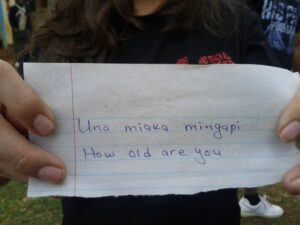 Una miaka mingapi
How old are you